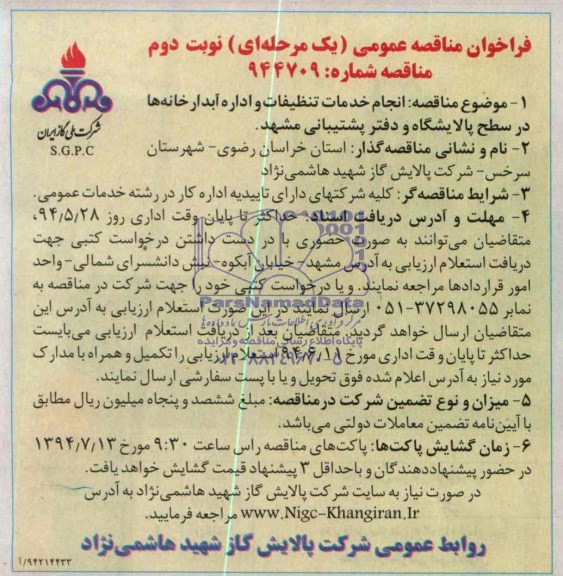 فراخوان مناقصه عمومی (یک مرحله‌ای) نوبت دوم
مناقصه شماره: ۹۴۴۷۰۹
شرکت ملی گاز ایران
S.G.P.C
۱- موضوع مناقصه: انجام خدمات تنظیفات و اداره آبدارخانه‌ها
در سطح پالایشگاه و دفتر پشتیبانی مشهد.
۲- نام و نشانی مناقصه‌گذار: استان خراسان رضوی- شهرستان
سرخس- شرکت پالایش گاز شهید هاشمی‌نژاد
۳- شرایط مناقصه‌گر: کلیه شرکتهای دارای تاییدیه اداره کار در رشته خدمات عمومی.
۴- مهلت و آدرس دریافت اسناد: حداکثر تا پایان وقت اداری روز ۹۴/۵/۲۸،
متقاضیان می‌توانند به صورت حضوری با در دست داشتن درخواست کتبی جهت
دریافت استعلام ارزیابی به آدرس مشهد- خیابان آبکوه- نبش دانشسرای شمالی- واحد
امور قراردادها مراجعه نمایند. و یا درخواست کتبی خود را جهت شرکت در مناقصه به
نمابر ۳۷۲۹۸۰۵۵-۰۵۱ ارسال نمایند در این صورت استعلام ارزیابی به آدرس این
متقاضیان ارسال خواهد گردید. متقاضیان بعد از دریافت استعلام ارزیابی می‌بایست
حداکثر تا پایان وقت اداری مورخ ۹۴/۶/۱۱ استعلام ارزیابی را تکمیل و همراه با مدارک
مورد نیاز به آدرس اعلام شده فوق تحویل و یا با پست سفارشی ارسال نمایند.
۵- میزان و نوع تضمین شرکت در مناقصه: مبلغ ششصد و پنجاه میلیون ریال مطابق
با آیین‌نامه تضمین معاملات دولتی می‌باشد.
۶- زمان گشایش پاکت‌ها: پاکت‌های مناقصه راس ساعت ۹:۳۰ مورخ ۱۳۹۴/۷/۱۳
در حضور پیشنهاددهندگان و با حداقل ۳ پیشنهاد قیمت گشایش خواهد یافت.
در صورت نیاز به سایت شرکت پالایش گاز شهید هاشمی‌نژاد به آدرس
www.Nigc-Khangiran.Ir مراجعه فرمایید.
روابط عمومی شرکت پالایش گاز شهید هاشمی‌نژاد
۹۴۲۱۴۴۳۳/آ
ParsNamadData
پایگاه اطلاع رسانی مناقصه و مزایده